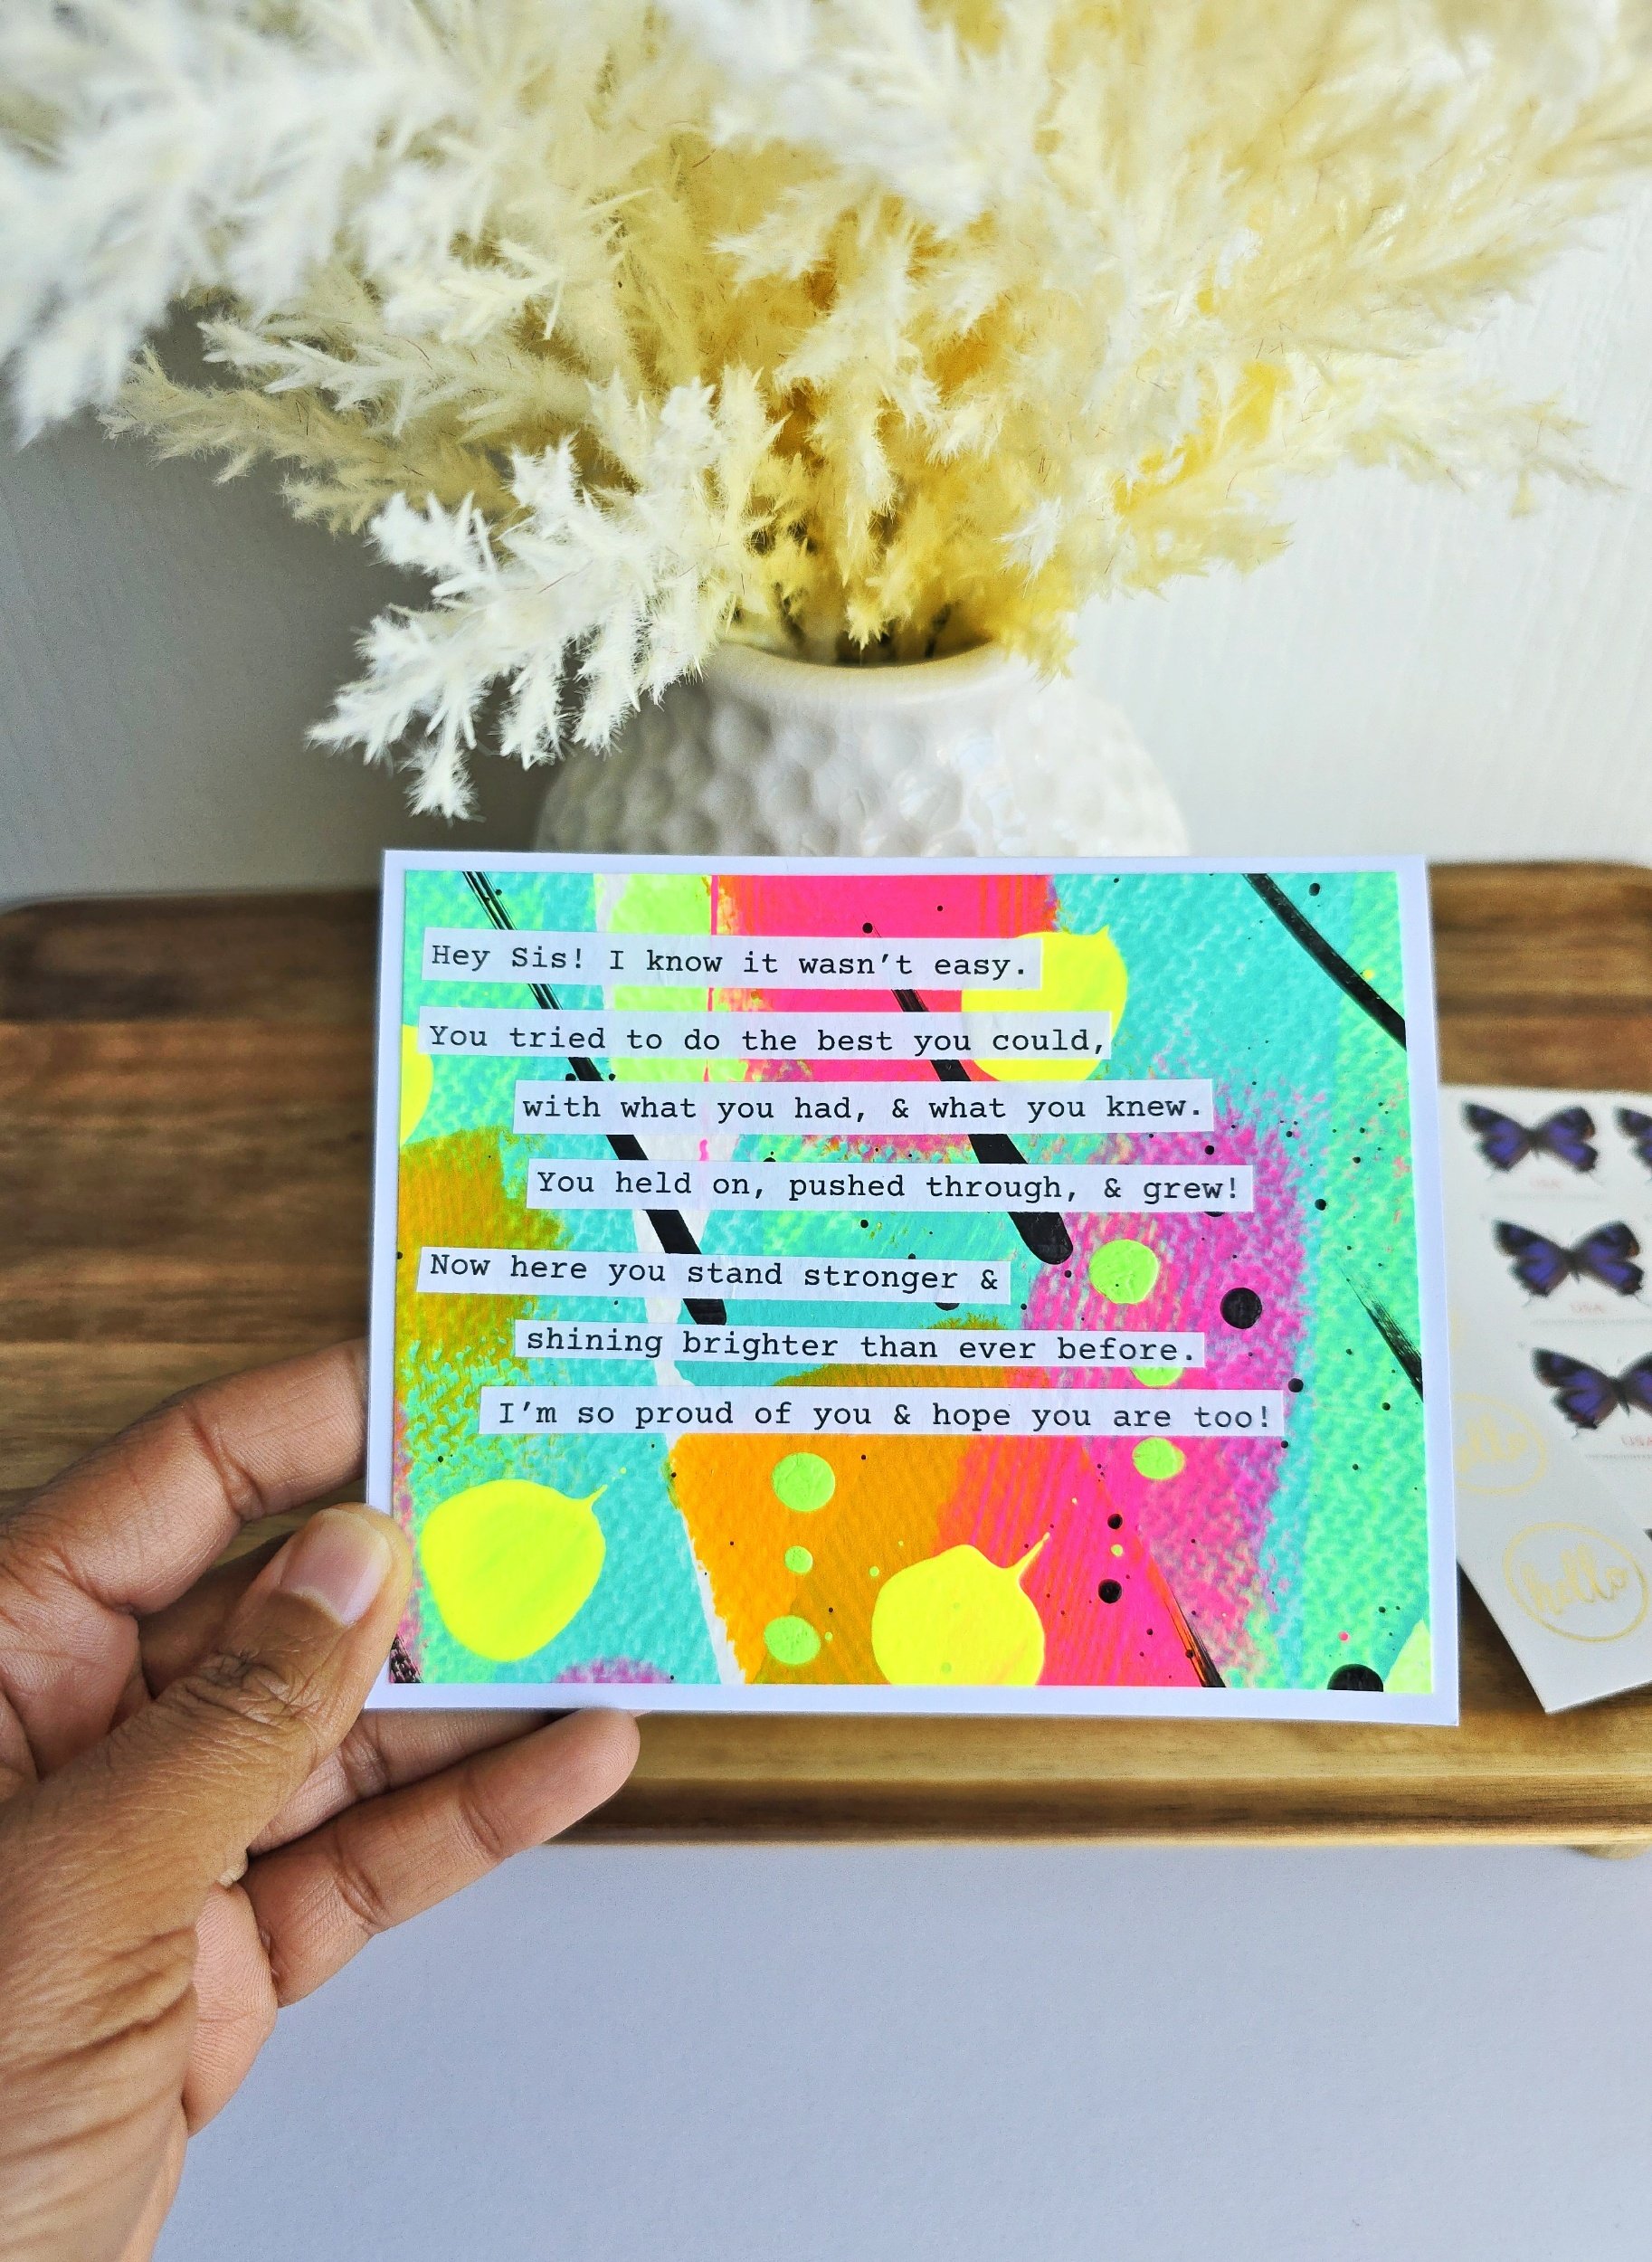 Hey Sis! I know it wasn't easy.
You tried to do the best you could,
with what you had, & what you knew.
You held on, pushed through, & grew!
Now here you stand stronger &
shining brighter than ever before.
I'm so proud of you & hope you are too!
USA
USA
USA
hello
hello